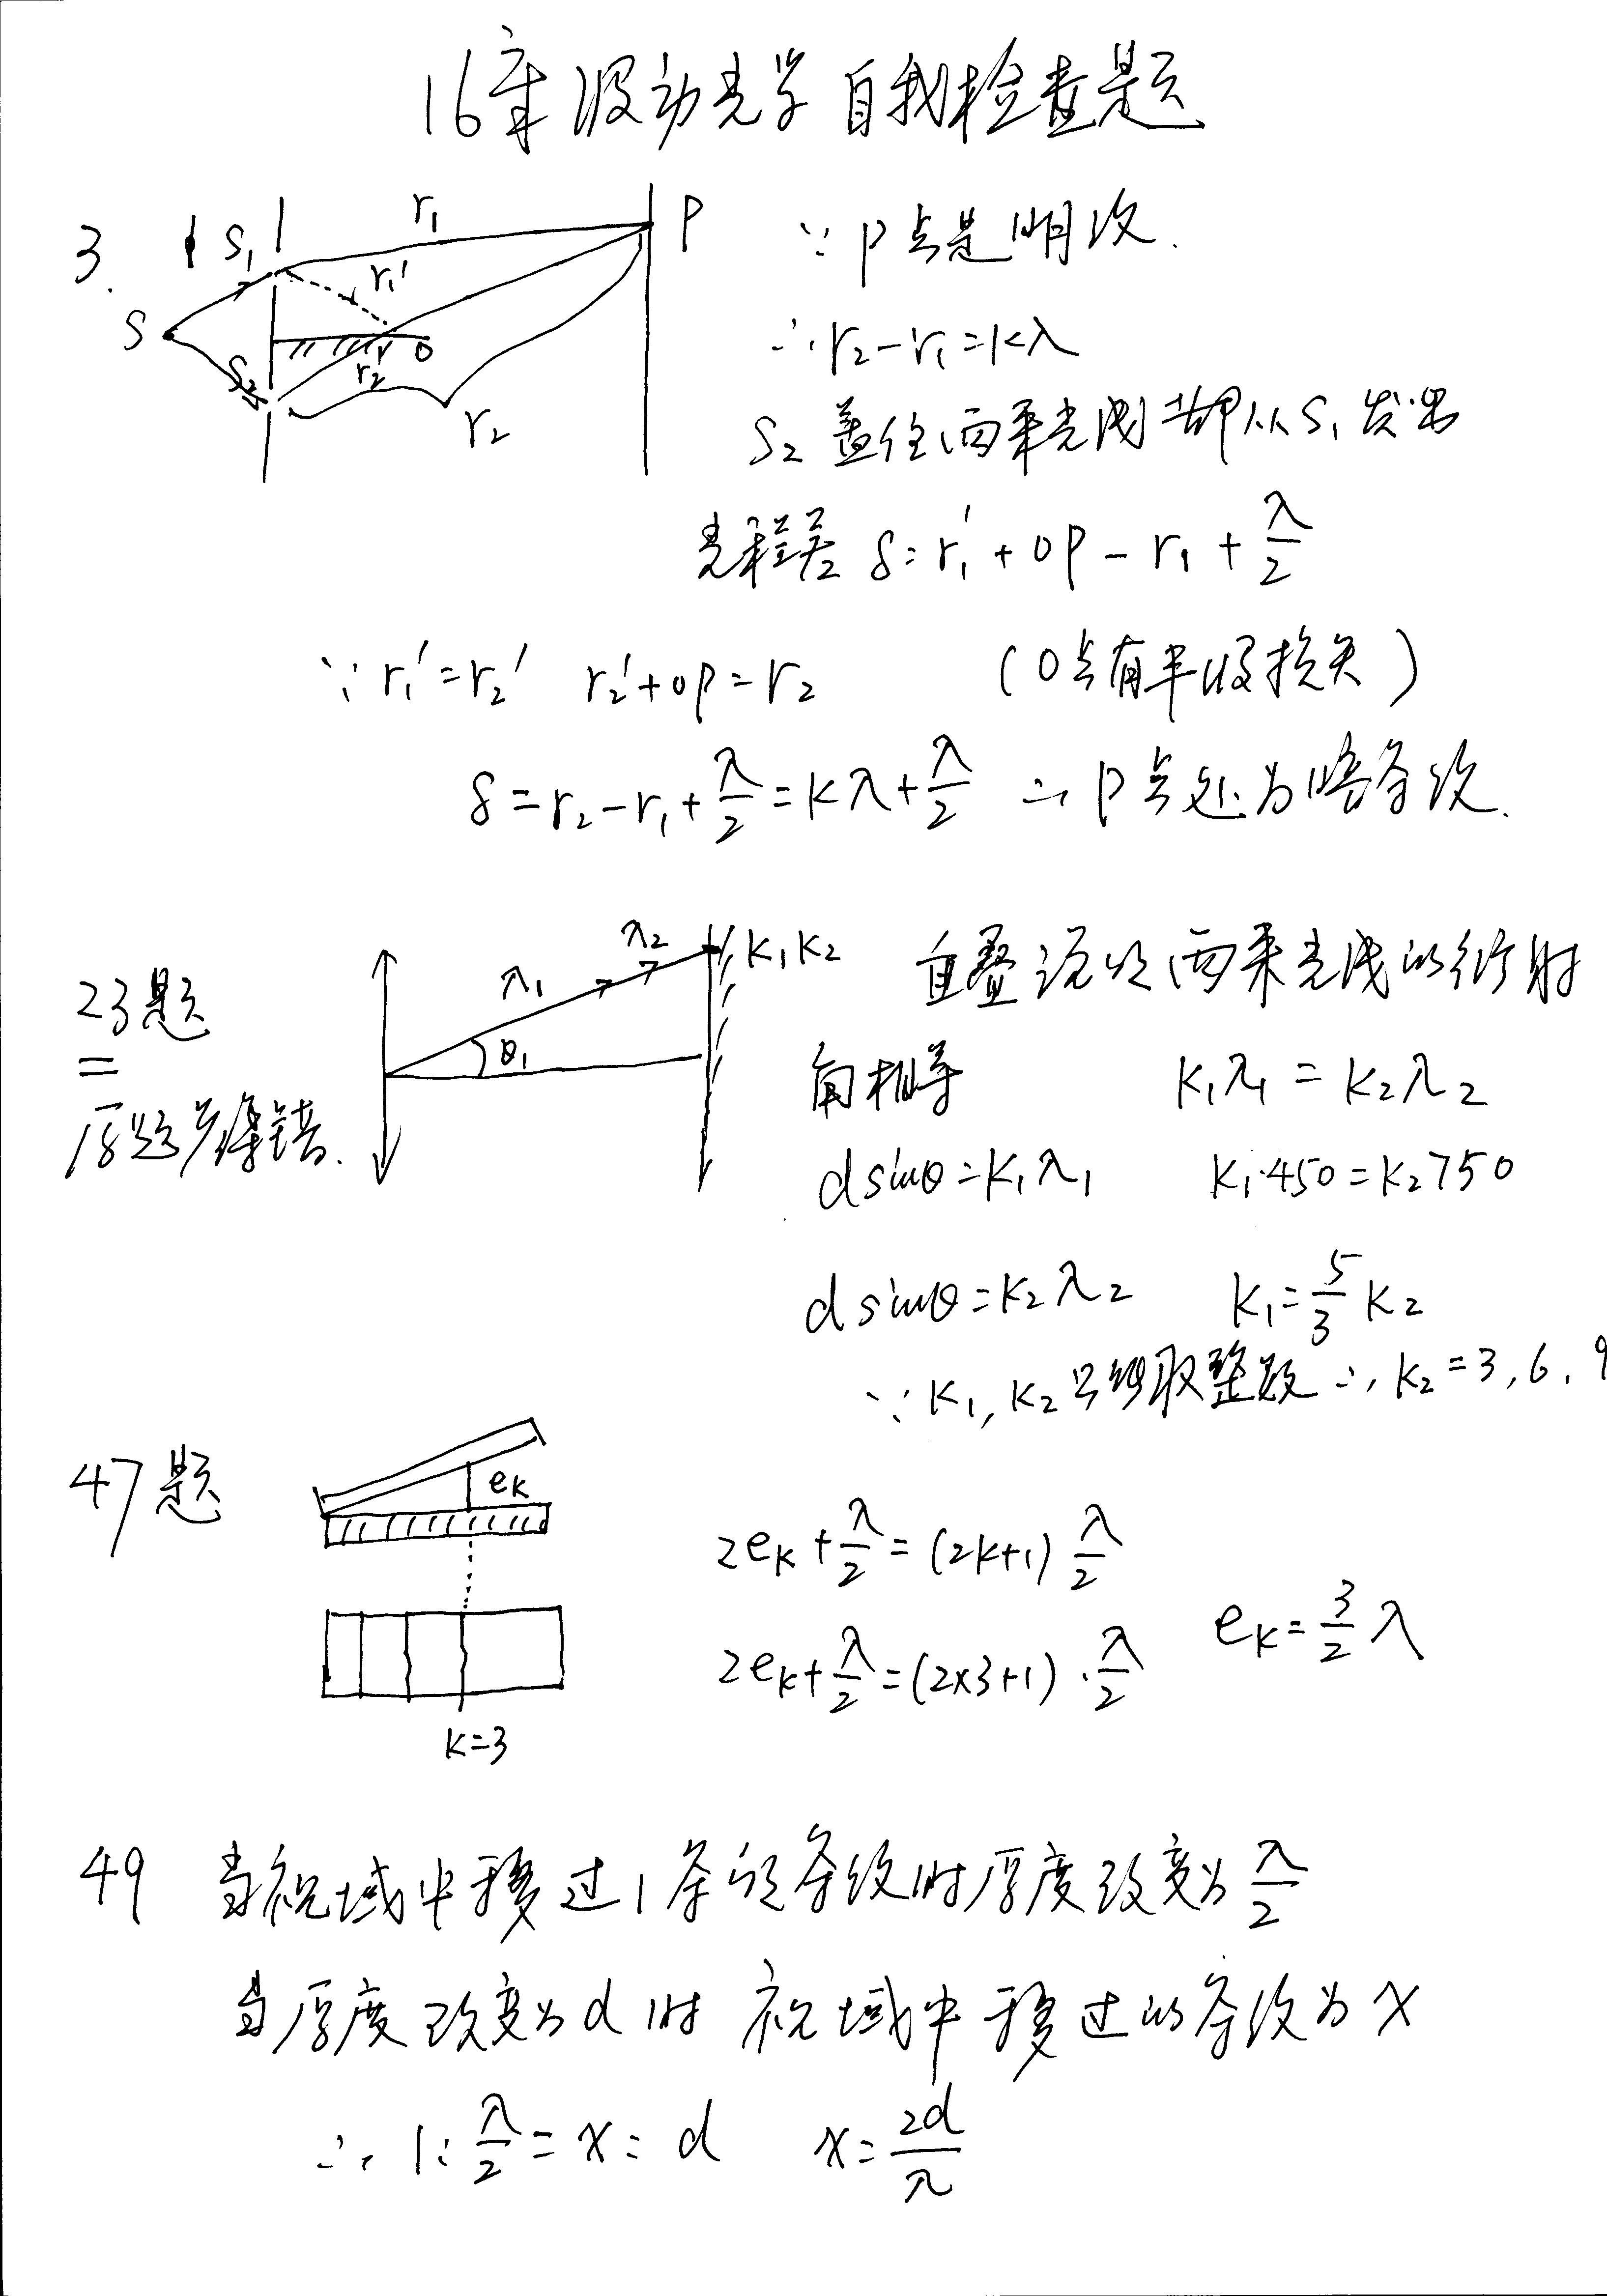 16章 波动光学 自我检查题
3.
S₁
r₁
P
r₁'
S
O
S₂
r₂'
r₂
∵ P点是明纹.
∴ r₂-r₁=kλ
S₂ 盖住两束光线都从S₁发出
光程差 δ=r₁'+OP-r₁+λ/2
∵ r₁'=r₂' r₂'+OP=r₂ (O点有半波损失)
δ=r₂-r₁+λ/2=kλ+λ/2 ∴ P点处为暗条纹.
23题
原题答案错.
λ₁
λ₂
θ₁
K₁K₂
重叠说明两束光线的衍射
角相等 K₁λ₁=K₂λ₂
dsinθ=K₁λ₁ K₁·450=K₂750
dsinθ=K₂λ₂ K₁=5/3 K₂
∵ K₁, K₂只能取整数 ∴ K₂=3,6,9
47题
eₖ
K=3
2eₖ+λ/2=(2k+1)λ/2
2eₖ+λ/2=(2×3+1)·λ/2 eₖ=3/2 λ
49 当视域中移过1条的条纹时厚度改变为λ/2
当厚度改变为d时 视域中移过的条纹为x
∴ 1:λ/2=x:d x=2d/λ